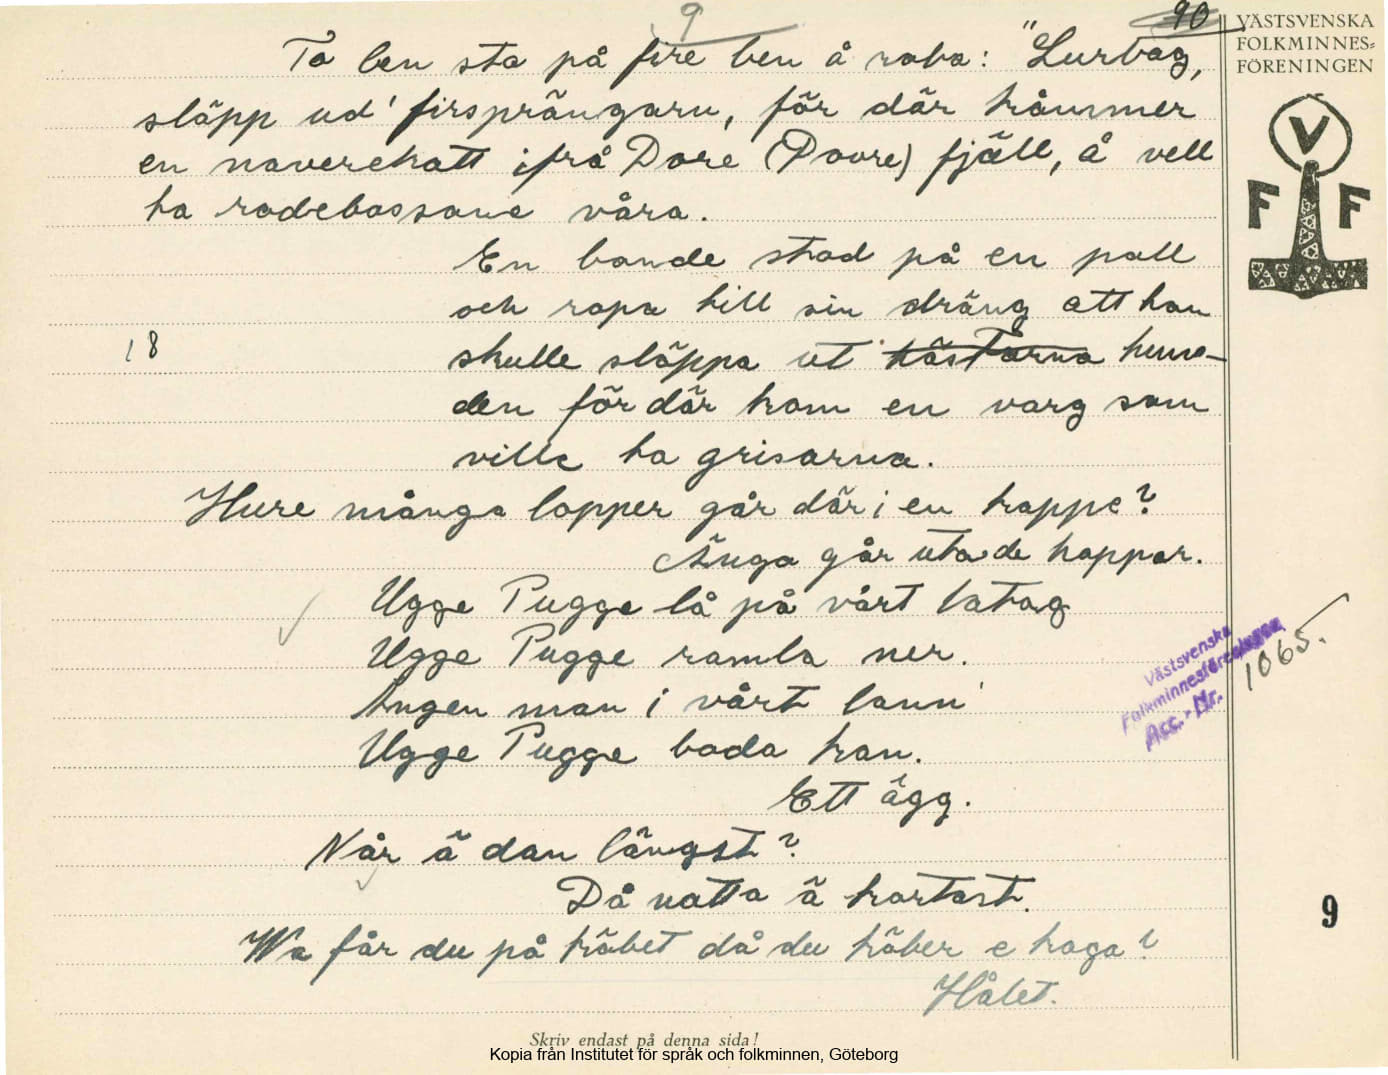 9
90
VÄSTSVENSKA
FOLKMINNES-
FÖRENINGEN
V
F F
To ben sto på fire ben å roba: "Lurbag,
släpp ud' firsprängarn, för där kåmmer
en naverekatt ifrå Dore (Dovre) fjäll, å vell
ha rodebassana våra.
En bonde stod på en pall
och ropa till sin dräng att han
18
skulle släppa ut hästarna hun-
den för där kom en varg som
ville ha grisarna.
Hure många lopper går där i en kappe?
Änga går utande happar.
Ugge Pugge lå på vårt latag
Ugge Pugge ramla ner.
Ingen man i vårt lann'
Ugge Pugge boda kan.
Ett ägg.
Västsvenska
Folkminnesföreningen
Acc.-Nr. 1065.
Når ä dan längst?
Då natta ä kortast.
9
Wa får du på köbet då du köber e kaga?
Hålet.
Skriv endast på denna sida!
Kopia från Institutet för språk och folkminnen, Göteborg